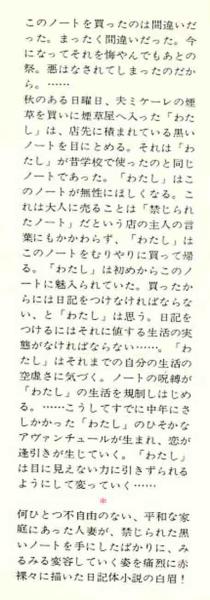 このノートを買ったのは間違いだ
った。まったく間違いだった。今
になってそれを悔やんでもあとの
祭。悪はなされてしまったのだか
ら。……
秋のある日曜日、夫ミケーレの煙
草を買いに煙草屋へ入った「わた
し」は、店先に積まれている黒い
ノートを目にとめる。それは「わ
たし」が昔学校で使ったのと同じ
ノートであった。「わたし」はこ
のノートが無性にほしくなる。こ
れは大人に売ることは「禁じられ
たノート」だという店の主人の言
葉にもかかわらず、「わたし」は
このノートをむりやりに買って帰
る。「わたし」は初めからこのノ
ートに魅入られていた。買ったか
らには日記をつけなければならな
い、と「わたし」は思う。日記を
つけるにはそれに値する生活の実
態がなければならない……。「わ
たし」はそれまでの自分の生活の
空虚さに気づく。ノートの呪縛が
「わたし」の生活を規制しはじめ
る。……こうしてすでに中年にさ
しかかった「わたし」のひそかな
アヴァンチュールが生まれ、恋が
逢引きが生じていく。「わたし」
は目に見えない力に引きずられる
ようにして変っていく……
*
何ひとつ不自由のない、平和な家
庭にあった人妻が、禁じられた黒
いノートを手にしたばかりに、み
るみる変容していく姿を痛烈に赤
裸々に描いた日記体小説の白眉！